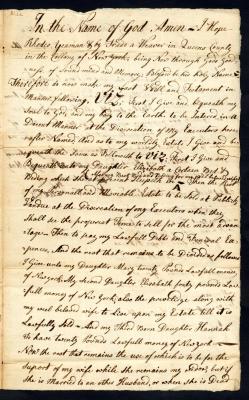 In the Name of God Amen I Hope
Rhodes, Yeoman & by Trade a Weaver in Queens County
in the Colony of New york; being Now through Gods Good
of Sound mind and Memory. Blessed be his Holy Name
Therefore do now make my Last Will and Testament in
Manner following, VIZ, First I Give and bequeath my
Soul to God, and my Body to the Earth to be Interd in a
Decent Manner at the Discretion of my Executors here
after Named. And as to my worldly Estate I Give and be
queath the Same as Followeth to VIZ. First I Give and
Bequeath unto my Daughter a Certain Bed
of my Moveable Estate to be Sold at Publick
Vendue at the Discretion of my Executors when they
Shall see the properest Time to Sell for the most advan
tage. Then to pay my Lawfull Debts and Funeral Ex
pences, and the rest that remains to be Divided as follows
I Give unto my Daughter Mary twenty Pounds Lawfull money
of New york. My second Daughter Elizabeth forty pounds Lawfull
money of New york also the priviledge along with
my well beloved wife to live upon my Estate till it is
Lawfully Sold. And my Third Born Daughter Hannah
to have twenty Pounds Lawfull money of New york
Now the rest that remains the use of which is to be for the
Suport of my wife while she remains my widow, but if
she is Married to an other Husband, or when she is Dead